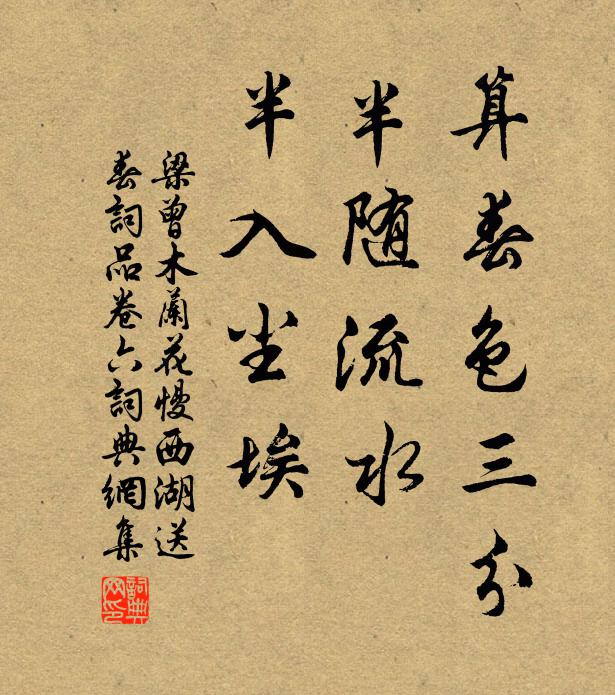 算春色三分
半随流水
半入尘埃
梁曾木蘭花慢西湖送
春詞品卷六詞典網集
詞典
网印